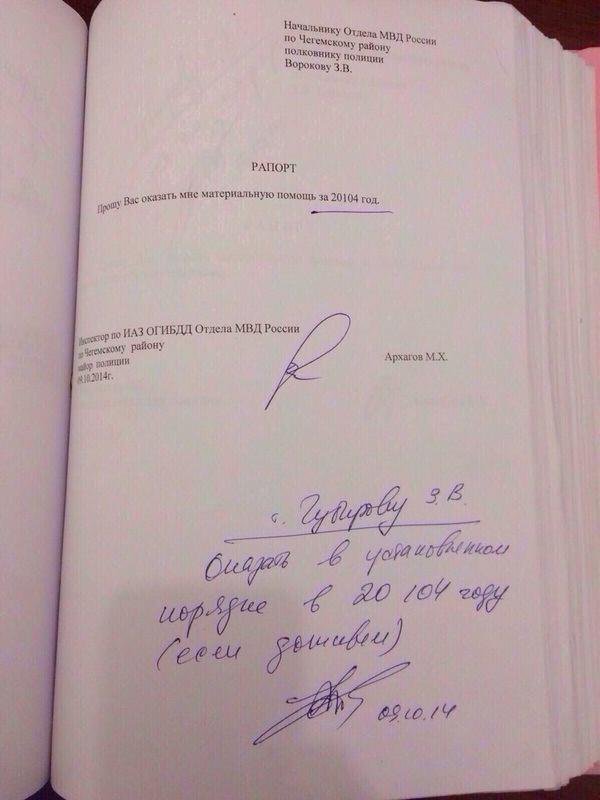 Начальнику Отдела МВД России
по Чегемскому району
полковнику полиции
Ворокову З.В.
РАПОРТ
Прошу Вас оказать мне материальную помощь за 20104 год.
Инспектор по ИАЗ ОГИБДД Отдела МВД России
по Чегемскому району
майор полиции
09.10.2014г.
Архагов М.Х.
З.В.
Оказать в установленном
порядке в 20104 году
(если доживем)
09.10.14